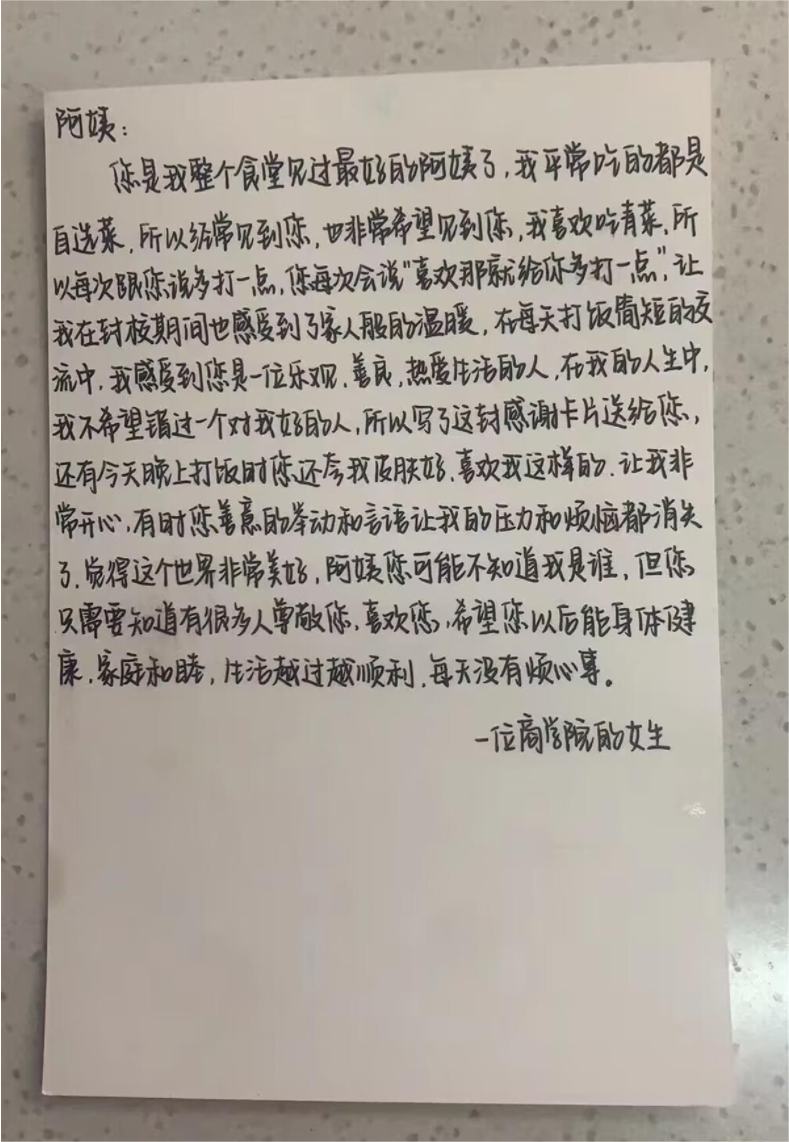 阿姨：
您是我整个食堂见过最好的阿姨了，我平常吃的都是
自选菜，所以经常见到您，也非常希望见到您，我喜欢吃青菜，所
以每次跟您说多打一点，您每次会说“喜欢那就给你多打一点”，让
我在封校期间也感受到了家人般的温暖，在每天打饭简短的交
流中，我感受到您是一位乐观、善良，热爱生活的人，在我的人生中，
我不希望错过一个对我好的人，所以写了这封感谢卡片送给您，
还有今天晚上打饭时您还夸我皮肤好、喜欢我这样的、让我非
常开心，有时您善意的举动和言语让我的压力和烦恼都消失
了、觉得这个世界非常美好，阿姨您可能不知道我是谁，但您
只需要知道有很多人尊敬您、喜欢您，希望您以后能身体健
康、家庭和睦，生活越过越顺利、每天没有烦心事。
一位商学院的女生